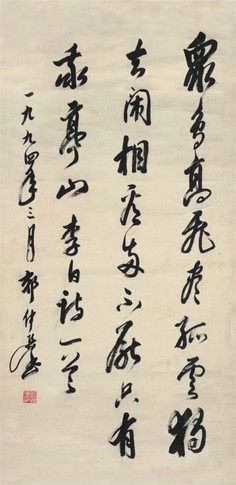 眾鳥高飛盡孤雲獨
去闲相看两不厭只有
敬亭山李白詩一首
一九九四年三月郭仲選書